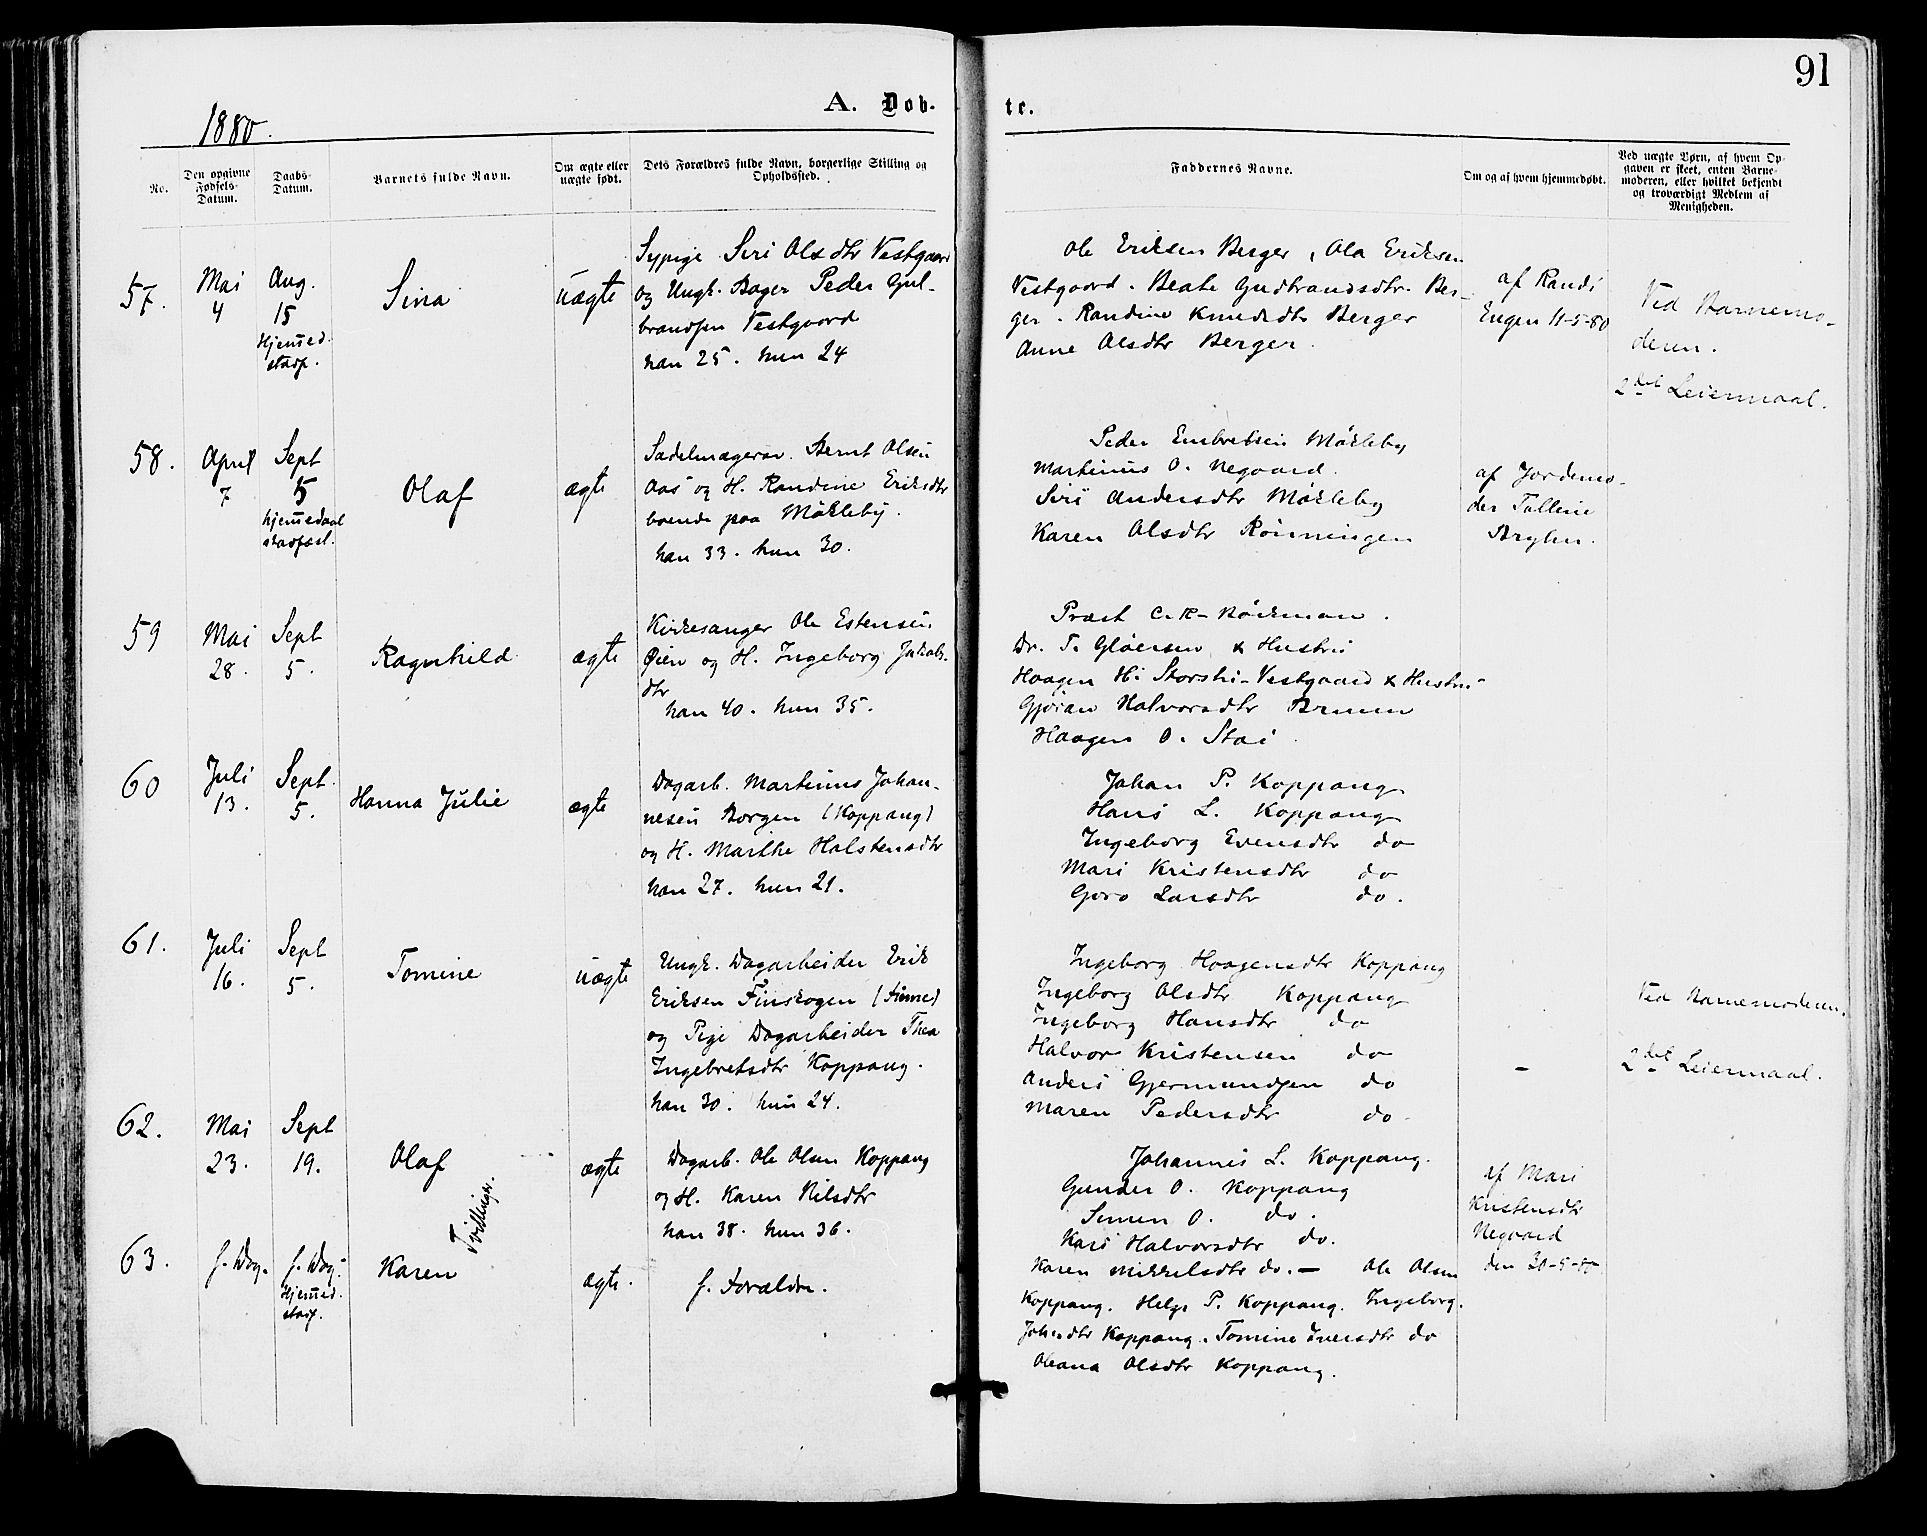 91
A. Døb-
te.
1880.
No.
Den opgivne Fødsels-Datum.
Daabs-Datum.
Barnets fulde Navn.
Om ægte eller uægte født.
Dets Forældres fulde Navn, borgerlige Stilling og Opholdssted.
Faddernes Navne.
Om og af hvem hjemmedøbt.
Ved uægte Børn, af hvem Op-
gaven er skeet, enten Barne-
moderen, eller hvilket bekjendt
og troværdigt Medlem af
Menigheden.
57.
Mai
4
Aug.
15
Hjemmed.
stadf.
Sina
uægte
Sypige Siri Olsdtr Vestgaard
og Ungk. Bager Peder Gul-
brandsen Vestgaard
han 25. hun 24
Ole Eriksen Berger, Ola Eriksen
Vestgaard. Beate Gudbrandsdtr. Ber-
ger. Randine Knudsdtr Berger
Anne Olsdtr Berger.
af Randi
Engen 11-5-80
Ved Barnemo-
deren.
2det Leiermaal.
58.
April
7
Sept
5
hjemmedaab
stadfæst.
Olaf
ægte
Sadelmagersv. Bernt Olsen
Aas og H. Randine Eriksdtr
boende paa Møkleby.
han 33. hun 30.
Peder Embretsen Møkleby
Martinus O. Negaard.
Siri Andersdtr Møkleby
Karen Olsdtr Rønningen
af Jordemo-
der Talline
59
Mai
28.
Sept
5.
Ragnhild
ægte
Kirkesanger Ole Estensen
Øien og H. Ingeborg Jakobs-
dtr
han 40. hun 35.
Præst C. R.
Dr. T. Gløersen & Hustru
Haagen H. Storsti-Vestgaard & Hustru
Gjøran Halvorsdtr Bruun
Haagen O. Stai.
60
Juli
13.
Sept.
5.
Hanna Julie
ægte
Dagarb. Martinus Johan-
nesen Borgen (Koppang)
og H. Marthe Halstensdtr
han 27. hun 21.
Johan P. Koppang
Hans L. Koppang
Ingeborg Evensdtr do
Mari Kristensdtr do
Goro Larsdtr do.
61.
Juli
16.
Sept
5.
Tomine
uægte
Ungk. Dagarbeider Erik
Eriksen Finskogen (Finne)
og Pige Dagarbeider Thea
Ingebretsdtr Koppang.
han 30. hun 24.
Ingeborg Haagensdtr Koppang
Ingeborg Olsdtr Koppang
Ingeborg Hansdtr do
Halvor Kristensen do
Anders Gjermundsen do
Maren Pedersdtr do.
-
Ved Barnemoderen.
2det Leiermaal.
62.
Mai
23.
Sept
19.
Olaf
ægte
Dagarb. Ole Olsen Koppang
og H. Karen Nilsdtr
han 38. hun 36.
Johannes L. Koppang.
Gunder O. Koppang
Simen O. do.
Kari Halvorsdtr do.
Karen Mikkelsdtr do. — Ole Olsen
Koppang. Helge P. Koppang. Ingeborg
Johsdtr Koppang. Tomine Iversdtr do
Oleana Olsdtr Koppang.
af Mari
Kristensdtr
Negaard
den 30-5-80
Tvillinger.
63.
f. Dag.
f. Dag.
Hjemmed.
stadf.
Karen
ægte.
f. Forældre.